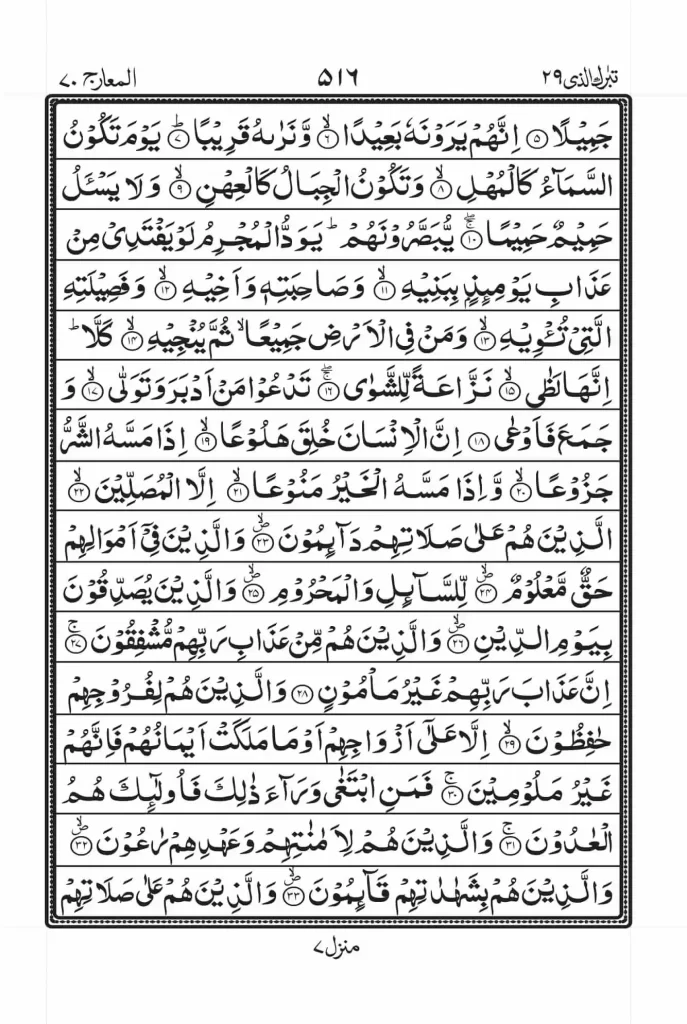 تبٰرك الذی ۲۹ ۵۱۶ المعارج ۷۰
جَمِيۡلًا ﴿۵﴾ اِنَّهُمۡ يَرَوۡنَهٗ بَعِيۡدًا ۙ‏﴿۶﴾ وَّنَرٰٮهُ قَرِيۡبًا ؕ‏﴿۷﴾ يَوۡمَ تَكُوۡنُ
السَّمَآءُ كَالۡمُهۡلِ ۙ‏﴿۸﴾ وَتَكُوۡنُ الۡجِبَالُ كَالۡعِهۡنِ ۙ‏﴿۹﴾ وَلَا يَسۡـَٔـلُ
حَمِيۡمٌ حَمِيۡمًا ۖۚ‏﴿۱۰﴾ يُّبَصَّرُوۡنَهُمۡ‌ؕ يَوَدُّ الۡمُجۡرِمُ لَوۡ يَفۡتَدِىۡ مِنۡ
عَذَابِ يَوۡمِٮِٕذٍۢ بِبَنِيۡهِ ۙ‏﴿۱۱﴾ وَ صَاحِبَتِهٖ وَاَخِيۡهِ ۙ‏﴿۱۲﴾ وَفَصِيۡلَتِهِ
الَّتِىۡ تُـــْٔوِيۡهِ ۙ‏﴿۱۳﴾ وَمَنۡ فِى الۡاَرۡضِ جَمِيۡعًا ۙ ثُمَّ يُنۡجِيۡهِ ۙ‏﴿۱۴﴾ كَلَّا ؕ
اِنَّهَا لَظٰى ۙ‏﴿۱۵﴾ نَزَّاعَةً لِّلشَّوٰى‌ ۖۚ‏﴿۱۶﴾ تَدۡعُوۡا مَنۡ اَدۡبَرَ وَتَوَلّٰى ۙ‏﴿۱۷﴾ وَ
جَمَعَ فَاَوۡعٰى ﴿۱۸﴾ اِنَّ الۡاِنۡسَانَ خُلِقَ هَلُوۡعًا ۙ‏﴿۱۹﴾ اِذَا مَسَّهُ الشَّرُّ
جَزُوۡعًا ۙ‏﴿۲۰﴾ وَّاِذَا مَسَّهُ الۡخَيۡرُ مَنُوۡعًا ۙ‏﴿۲۱﴾ اِلَّا الۡمُصَلِّيۡنَ ۙ‏﴿۲۲﴾
الَّذِيۡنَ هُمۡ عَلٰى صَلَاتِهِمۡ دَآٮِٕمُوۡنَ ۙ‏﴿۲۳﴾ وَالَّذِيۡنَ فِىۡۤ اَمۡوَالِهِمۡ
حَقٌّ مَّعۡلُوۡمٌ ۙ‏﴿۲۴﴾ لِّلسَّآٮِٕلِ وَالۡمَحۡرُوۡمِ ۙ‏﴿۲۵﴾ وَالَّذِيۡنَ يُصَدِّقُوۡنَ
بِيَوۡمِ الدِّيۡنِ ۙ‏﴿۲۶﴾ وَالَّذِيۡنَ هُمۡ مِّنۡ عَذَابِ رَبِّهِمۡ مُّشۡفِقُوۡنَ‌ ۚ‏﴿۲۷﴾
اِنَّ عَذَابَ رَبِّهِمۡ غَيۡرُ مَاۡمُوۡنٍ ﴿۲۸﴾ وَالَّذِيۡنَ هُمۡ لِفُرُوۡجِهِمۡ
حٰفِظُوۡنَ ۙ‏﴿۲۹﴾ اِلَّا عَلٰٓى اَزۡوَاجِهِمۡ اَوۡ مَا مَلَـكَتۡ اَيۡمَانُهُمۡ فَاِنَّهُمۡ
غَيۡرُ مَلُوۡمِيۡنَ‌ ۚ‏﴿۳۰﴾ فَمَنِ ابۡتَغٰى وَرَآءَ ذٰلِكَ فَاُولٰٓٮِٕكَ هُمُ
الۡعٰدُوۡنَ‌ ۚ‏﴿۳۱﴾ وَالَّذِيۡنَ هُمۡ لِاَمٰنٰتِهِمۡ وَعَهۡدِهِمۡ رٰعُوۡنَ ۙ‏﴿۳۲﴾
وَالَّذِيۡنَ هُمۡ بِشَهٰدٰتِهِمۡ قَآٮِٕمُوۡنَ ۙ‏﴿۳۳﴾ وَالَّذِيۡنَ هُمۡ عَلٰى صَلَاتِهِمۡ
منزل ۷